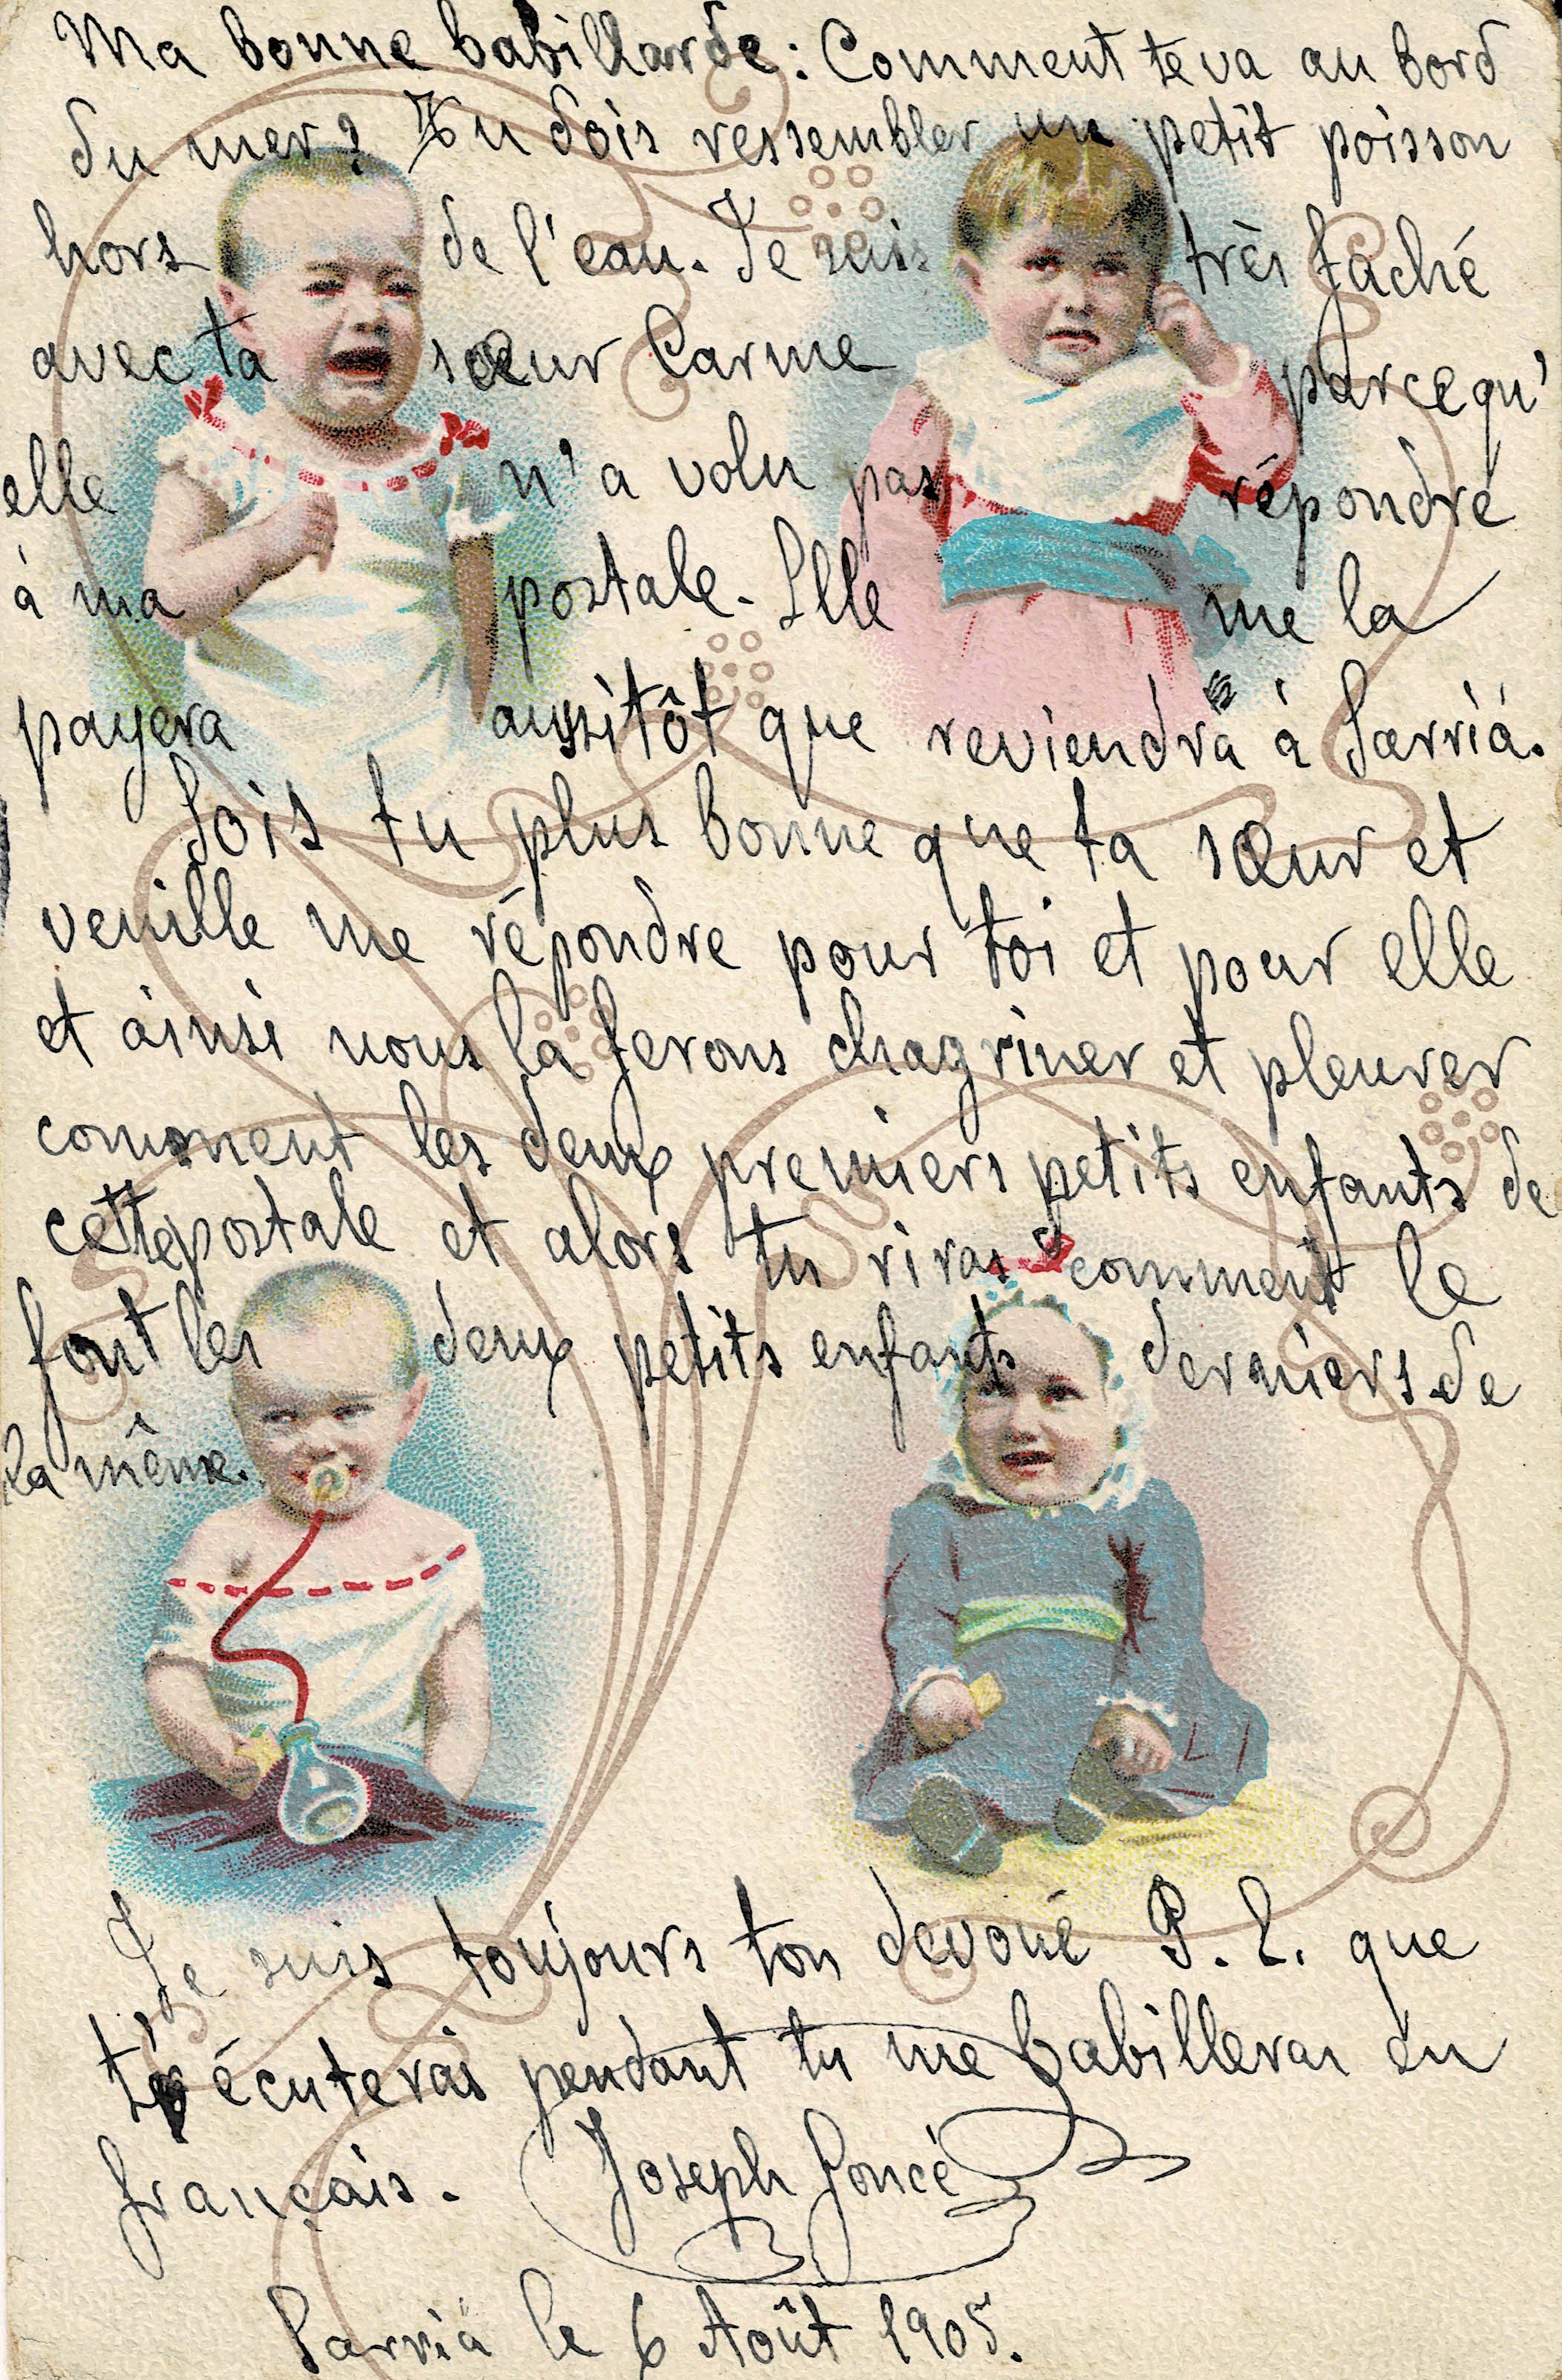 Ma bonne babillarde: Comment te va au bord
du mer? Tu dois ressembler un petit poisson
hors de l'eau. Je suis très faché
avec ta sœur Carme parcequ'
elle n'a volu pas répondre
à ma postale. Elle me la
payera aussitôt que reviendra à Sarriá.
Sois tu plus bonne que ta sœur et
veuille me répondre pour toi et pour elle
et ainsi nous la ferons chagriner et pleurer
comment les deux premiers petits enfants de
cette postale et alors tu riras comment le
font les deux petits enfants derniers de
la même.
Je suis toujours ton devoué P. E. que
t'écuterai pendant tu me babilleras en
français. Joseph Goncé
Sarriá le 6 Août 1905.